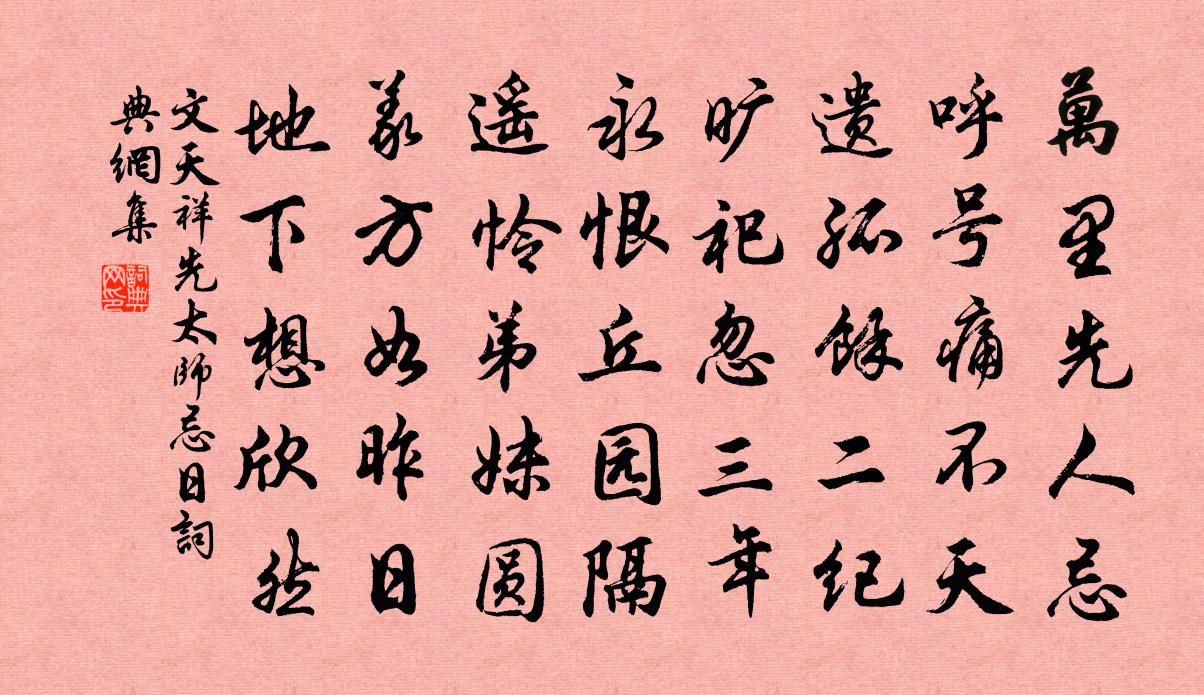 萬里先人忌
呼号痛不天
遗孤餘二纪
旷祀忽三年
永恨丘园隔
遥怜弟妹圆
义方如昨日
地下想欣然
文天祥先太師忌日詞
典網集
詞典网印